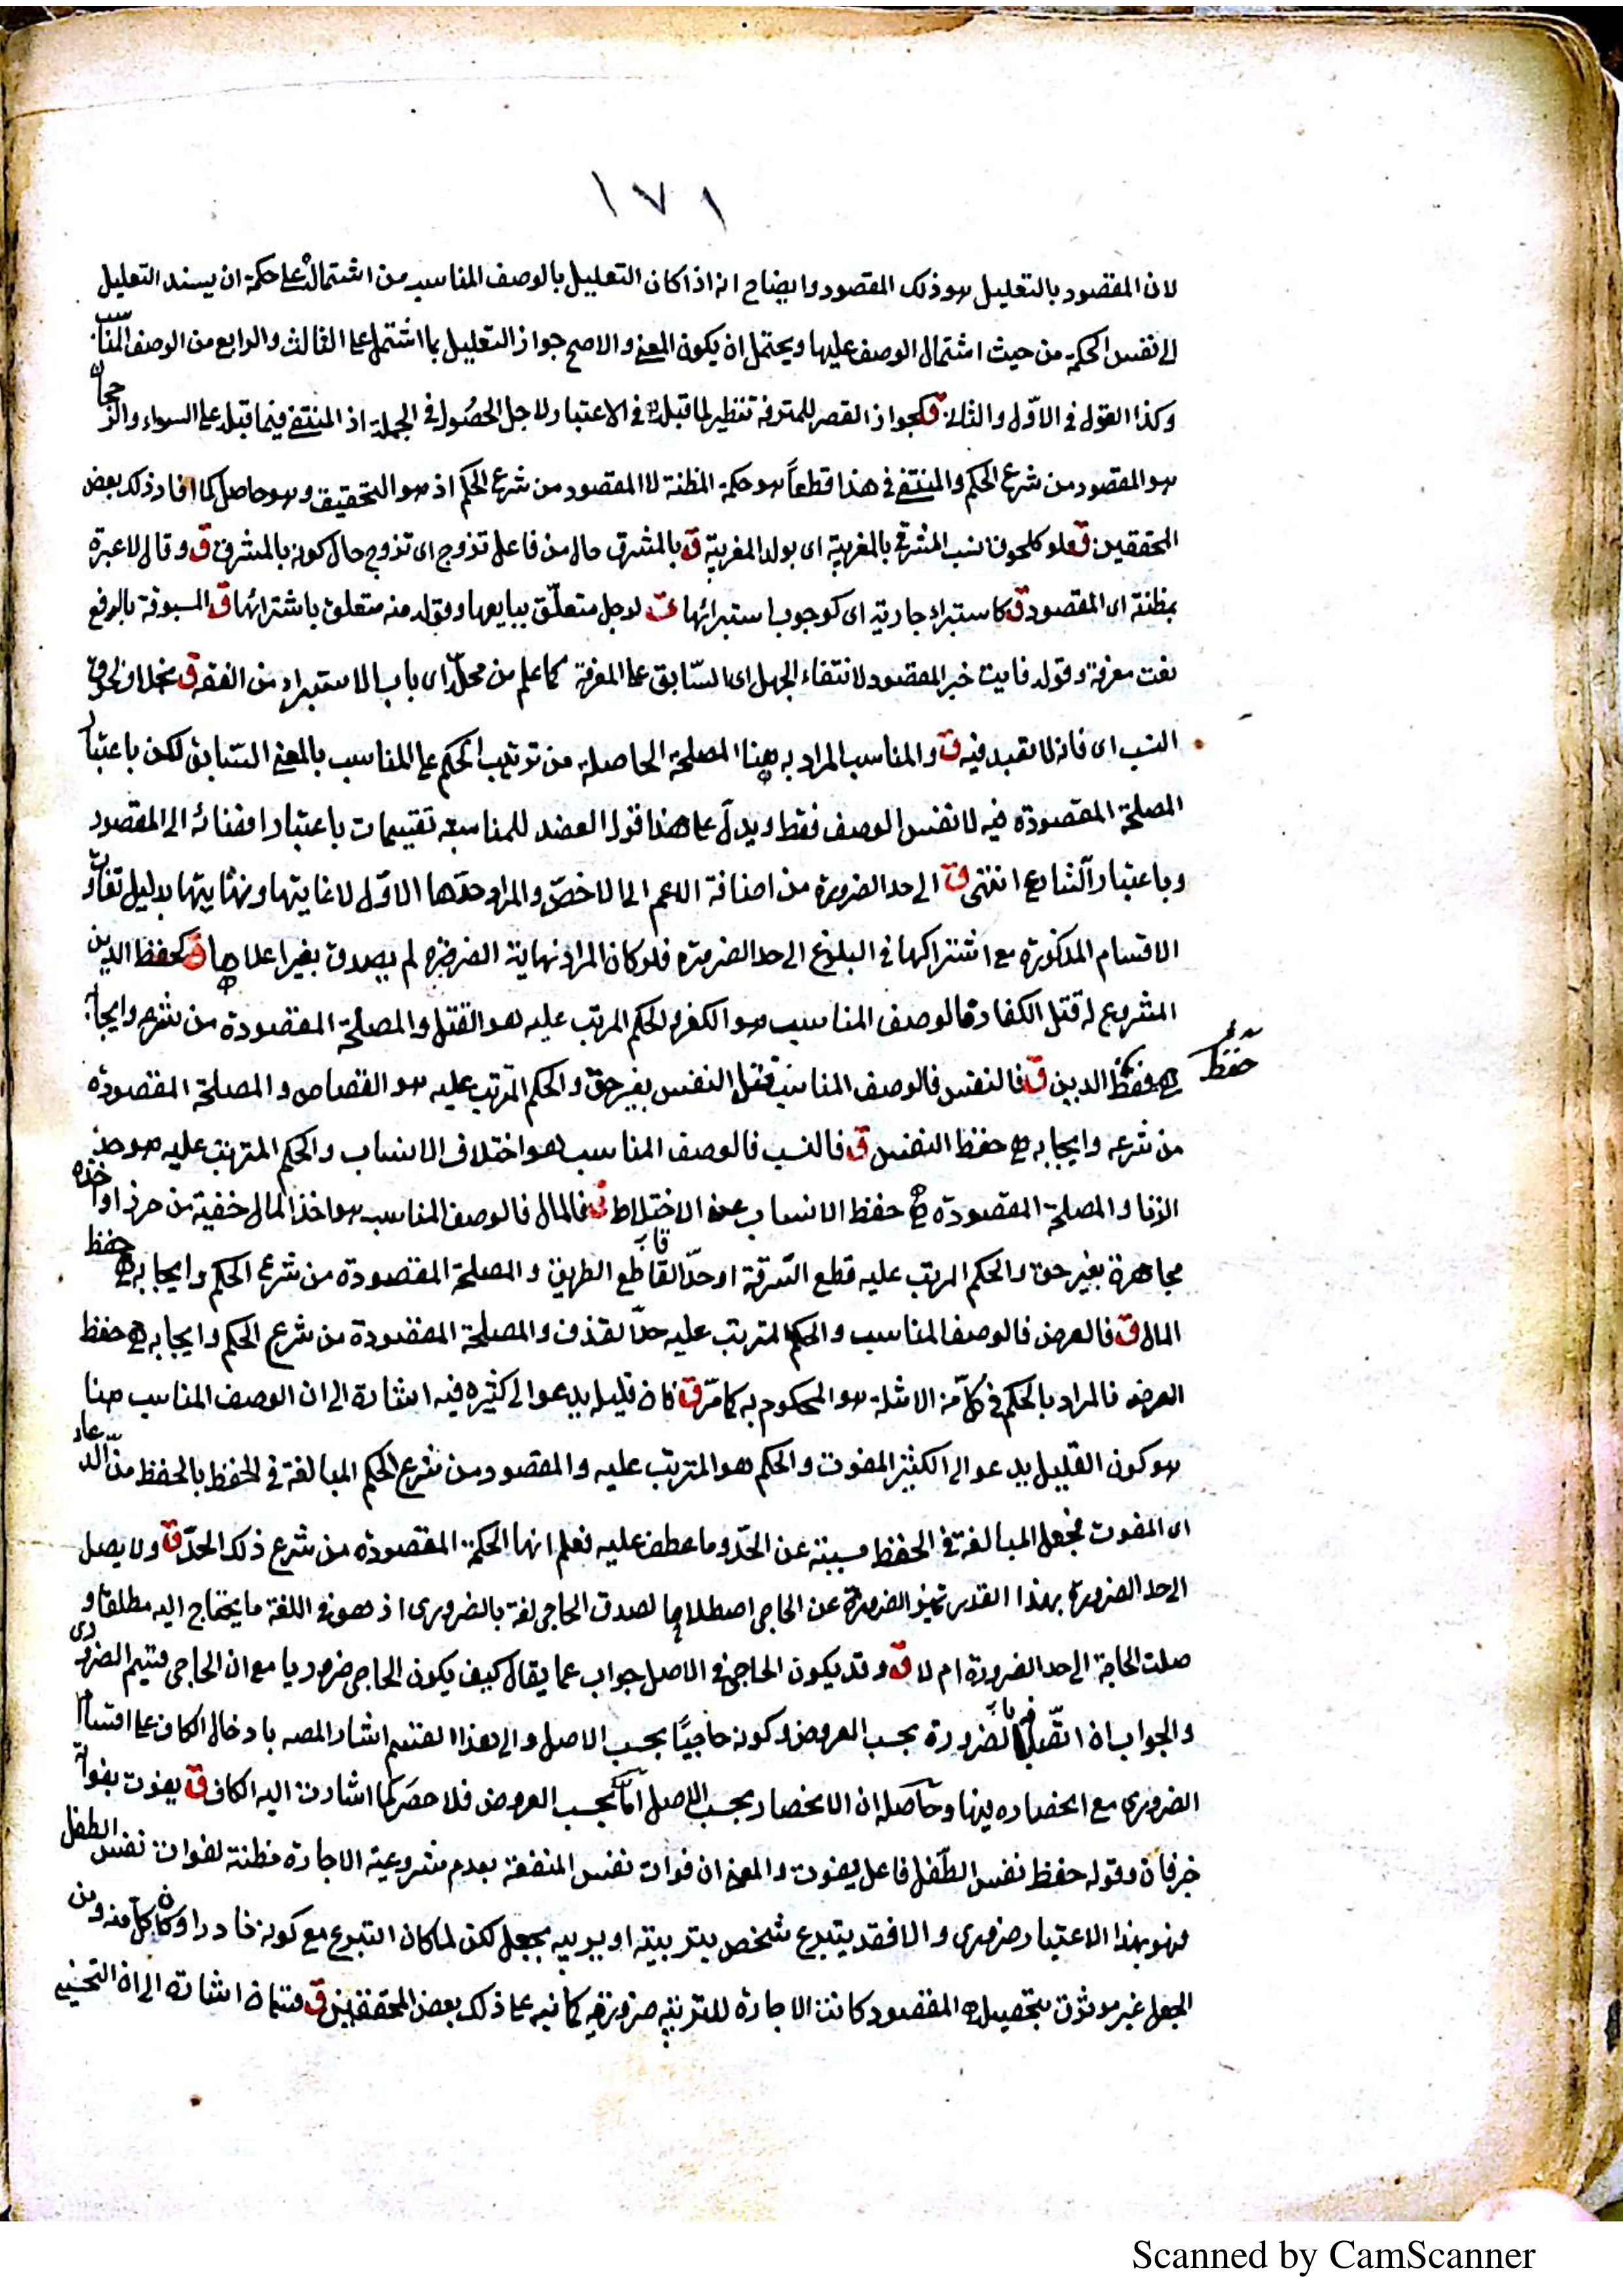 ١٧١
لان المقصود بالتعليل هو ذلك المقصود وايضاح انه اذا كان التعليل بالوصف المناسب من اشتماله على حكمة ان يسند التعليل
الى نفس الحكمة من حيث اشتمال الوصف عليها ويحتمل ان يكون المعنى والاصح جواز التعليل بما اشتمل على الثالث والرابع من الوصف المناسب
وكذا القول في الاول والثانى ق كجواز القصر للمترفه تنظير لما قبله في الاعتبار لاجل الحصول في الجملة اذ المنتفى فيما قبله على السواء والراجح
هو المقصود من شرع الحكم والمنتفى في هذا قطعاً هو حكمة المظنة لا المقصود من شرع الحكم اذ هو التحقيق وهو حاصل كما افاد ذلك بعض
المحققين ق فلو كلحوق نسب المشرقى بالمغربية اى بولد المغربية ق بالمشرق حال من فاعل تزوج اى تزوج حال كونه بالمشرق ق وقال لا عبرة
بمظنته اى المقصود ق كاستبراء جارية اى كوجوب استبرائها ق لرجل متعلّق ببايعها وقوله منه متعلق باشترائها ق المسبوقة بالرفع
نعت معرفة وقوله فايت خبر المقصود لانتفاء الجهل اى السّابق على المعرفة كما علم من محلّه اى باب الاستبراء من الفقه ق بخلاف لحوق
النسب اى فانه لا تعبد فيه ق والمناسب المراد به هنا المصلحة الحاصلة من ترتيب الحكم على المناسب بالمعنى السّابق لكن باعتبار
المصلحة المقصودة فيه لا نفس الوصف فقط ويدلّ على هذا قول العضد للمناسبة تقسيمات باعتبار افضائه الى المقصود
وباعتبار الشارع انتهى ق الى حد الضرورة من اضافة الاعم الى الاخصّ والمراد حدّها الاوّل لا غايتها ونهايتها بدليل تفاوت
الاقسام المذكورة مع اشتراكها في البلوغ الى حد الضرورة فلو كان المراد نهاية الضرورة لم يصدق بغير اعلاها ق كحفظ الدين
المشروع له قتل الكفار فالوصف المناسب هو الكفر والحكم المرتب عليه هو القتل والمصلحة المقصودة من شرعه وايجابه
هى حفظ الدين ق فالنفس فالوصف المناسب قتل النفس بغير حق والحكم المرتب عليه هو القصاص والمصلحة المقصودة
حفظ
من شرعه وايجابه هى حفظ النفس ق فالنسب فالوصف المناسب هو اختلاف الانساب والحكم المترتب عليه هو حد
الزنا والمصلحة المقصودة هى حفظ الانساب عن الاختلاط ق فالمال فالوصف المناسب هو اخذ المال خفية من حرز او اخذه
مجاهرة بغير حق والحكم المرتب عليه قطع السّرقة او حدّ القاطع الطريق والمصلحة المقصودة من شرع الحكم وايجابه هى حفظ
المال ق فالعرض فالوصف المناسب والحكم المترتب عليه حدّ القذف والمصلحة المقصودة من شرع الحكم وايجابه هى حفظ
العرض فالمراد بالحكم في كلّ من الامثلة هو المحكوم به كما مرّ ق فان قليله يدعو الى كثيره فيه اشارة الى ان الوصف المناسب هنا
هو كون القليل يدعو الى الكثير المفوت والحكم هو المترتب عليه والمقصود من شرع الحكم المبالغة في الحفظ بالحفظ من الدعاء
اى المفوت فجعل المبالغة في الحفظ مسببة عن الحدّ وما عطف عليه فعلم انها الحكمة المقصودة من شرع ذلك الحدّ ق ولا يصل
الى حد الضرورة بهذا القدر تميز الضرورة عن الحاجى اصطلاحا لصدق الحاجى لغة بالضرورى اذ هو في اللغة ما يحتاج اليه مطلقا و
صلت الحاجة الى حد الضرورة ام لا ق وقد يكون الحاجى في الاصل جواب عما يقال كيف يكون الحاجى ضروريا مع ان الحاجى قسيم الضرورى
والجواب ان اتّصافه بالضرورة بحسب العروض وكونه حاجيًا بحسب الاصل والى هذا القسم اشار المصه بادخال الكاف على اقسام
الضرورى مع انحصاره فيها وحاصله ان الانحصار بحسب الاصل امّا بحسب العروض فلا حصر كما اشارت اليه الكاف ق يفوت بفوات
خبر فان وقوله حفظ نفس الطّفل فاعل يفوت والمعنى ان فوات نفس المنفعة بعدم مشروعية الاجارة مظنة لفوات نفس الطفل
فهو بهذا الاعتبار ضرورى والا فقد يتبرع شخص بتربيته او يربيه بجعل لكن لما كان التبرع مع كونه نادرا وكان كل منه ومن
الجعل غير موثوق بتحصيله المقصود كانت الاجارة للتربية ضرورية كما نبه على ذلك بعض المحققين ق قسمان اشارة الى ان التحسينى
Scanned by CamScanner